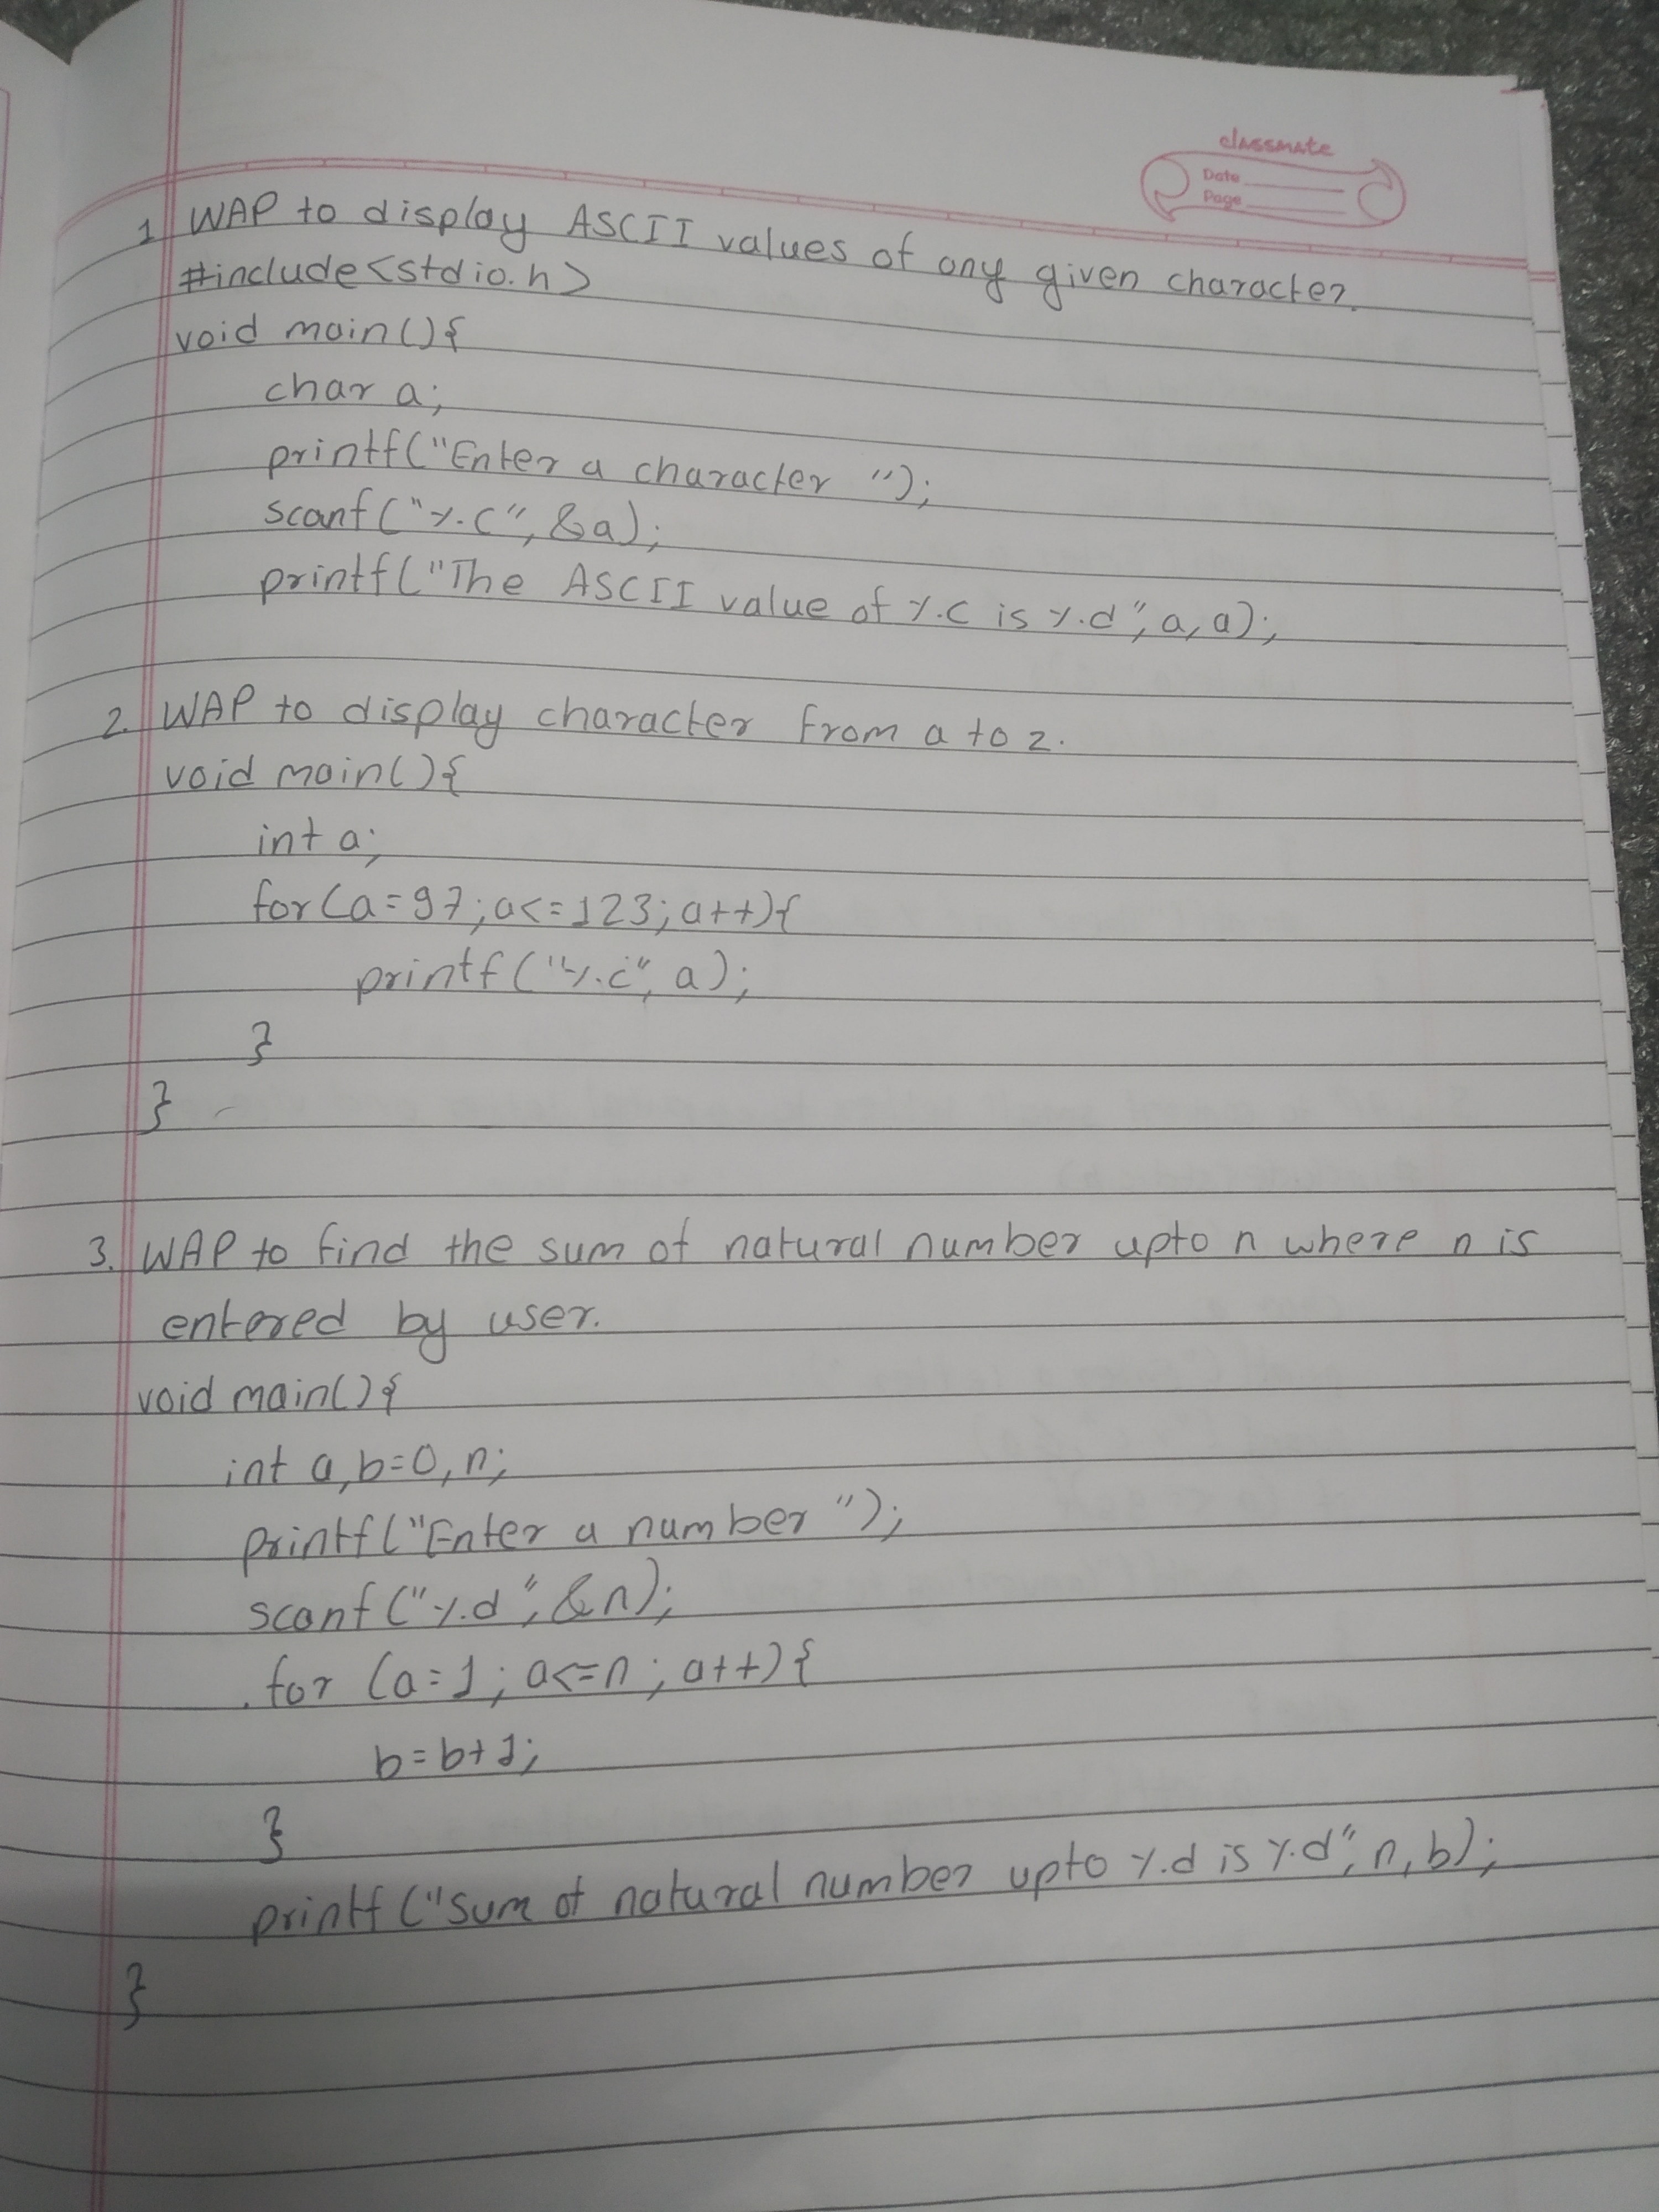 classmate
Date
Page
1 WAP to display ASCII values of any given character.
#include<stdio.h>
void main(){
char a;
printf("Enter a character ");
scanf("%c", &a);
printf("The ASCII value of %c is %d", a, a);
2. WAP to display character from a to z.
void main(){
int a;
for(a=97; a<=123; a++){
printf("%c", a);
}
}
3. WAP to find the sum of natural number upto n where n is
entered by user.
void main(){
int a, b=0, n;
printf("Enter a number ");
scanf("%d", &n);
for (a=1; a<=n; a++){
b=b+1;
}
printf("Sum of natural number upto %d is %d", n, b);
}